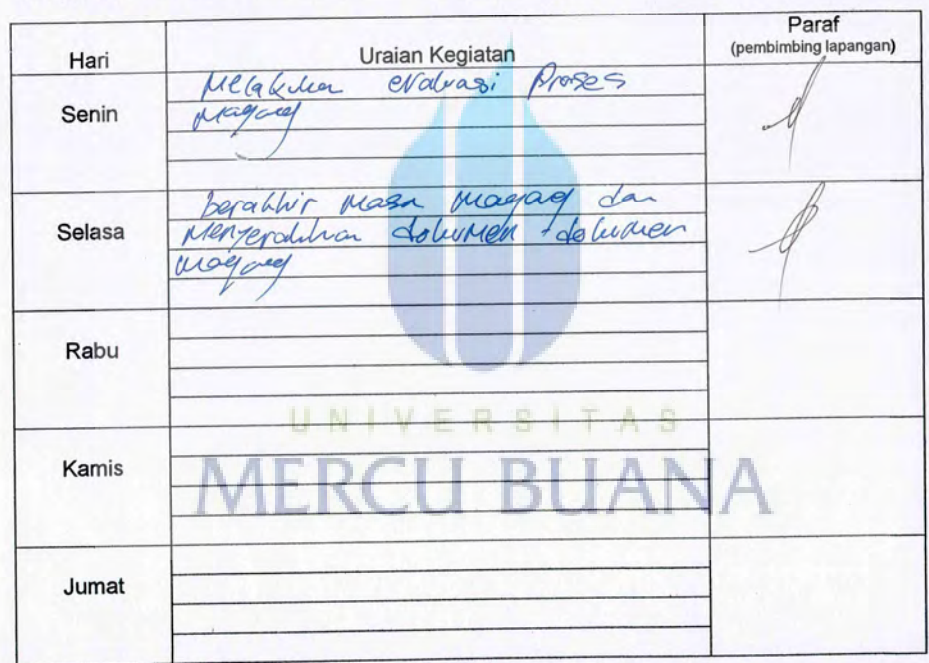 Hari Uraian Kegiatan Paraf
(pembimbing lapangan)
Senin
Melakukan evaluasi Proses
magang
Selasa
berakhir masa magang dan
Menyerahkan dokumen - dokumen
magang
Rabu
UNIVERSITAS
Kamis
MERCU BUANA
Jumat